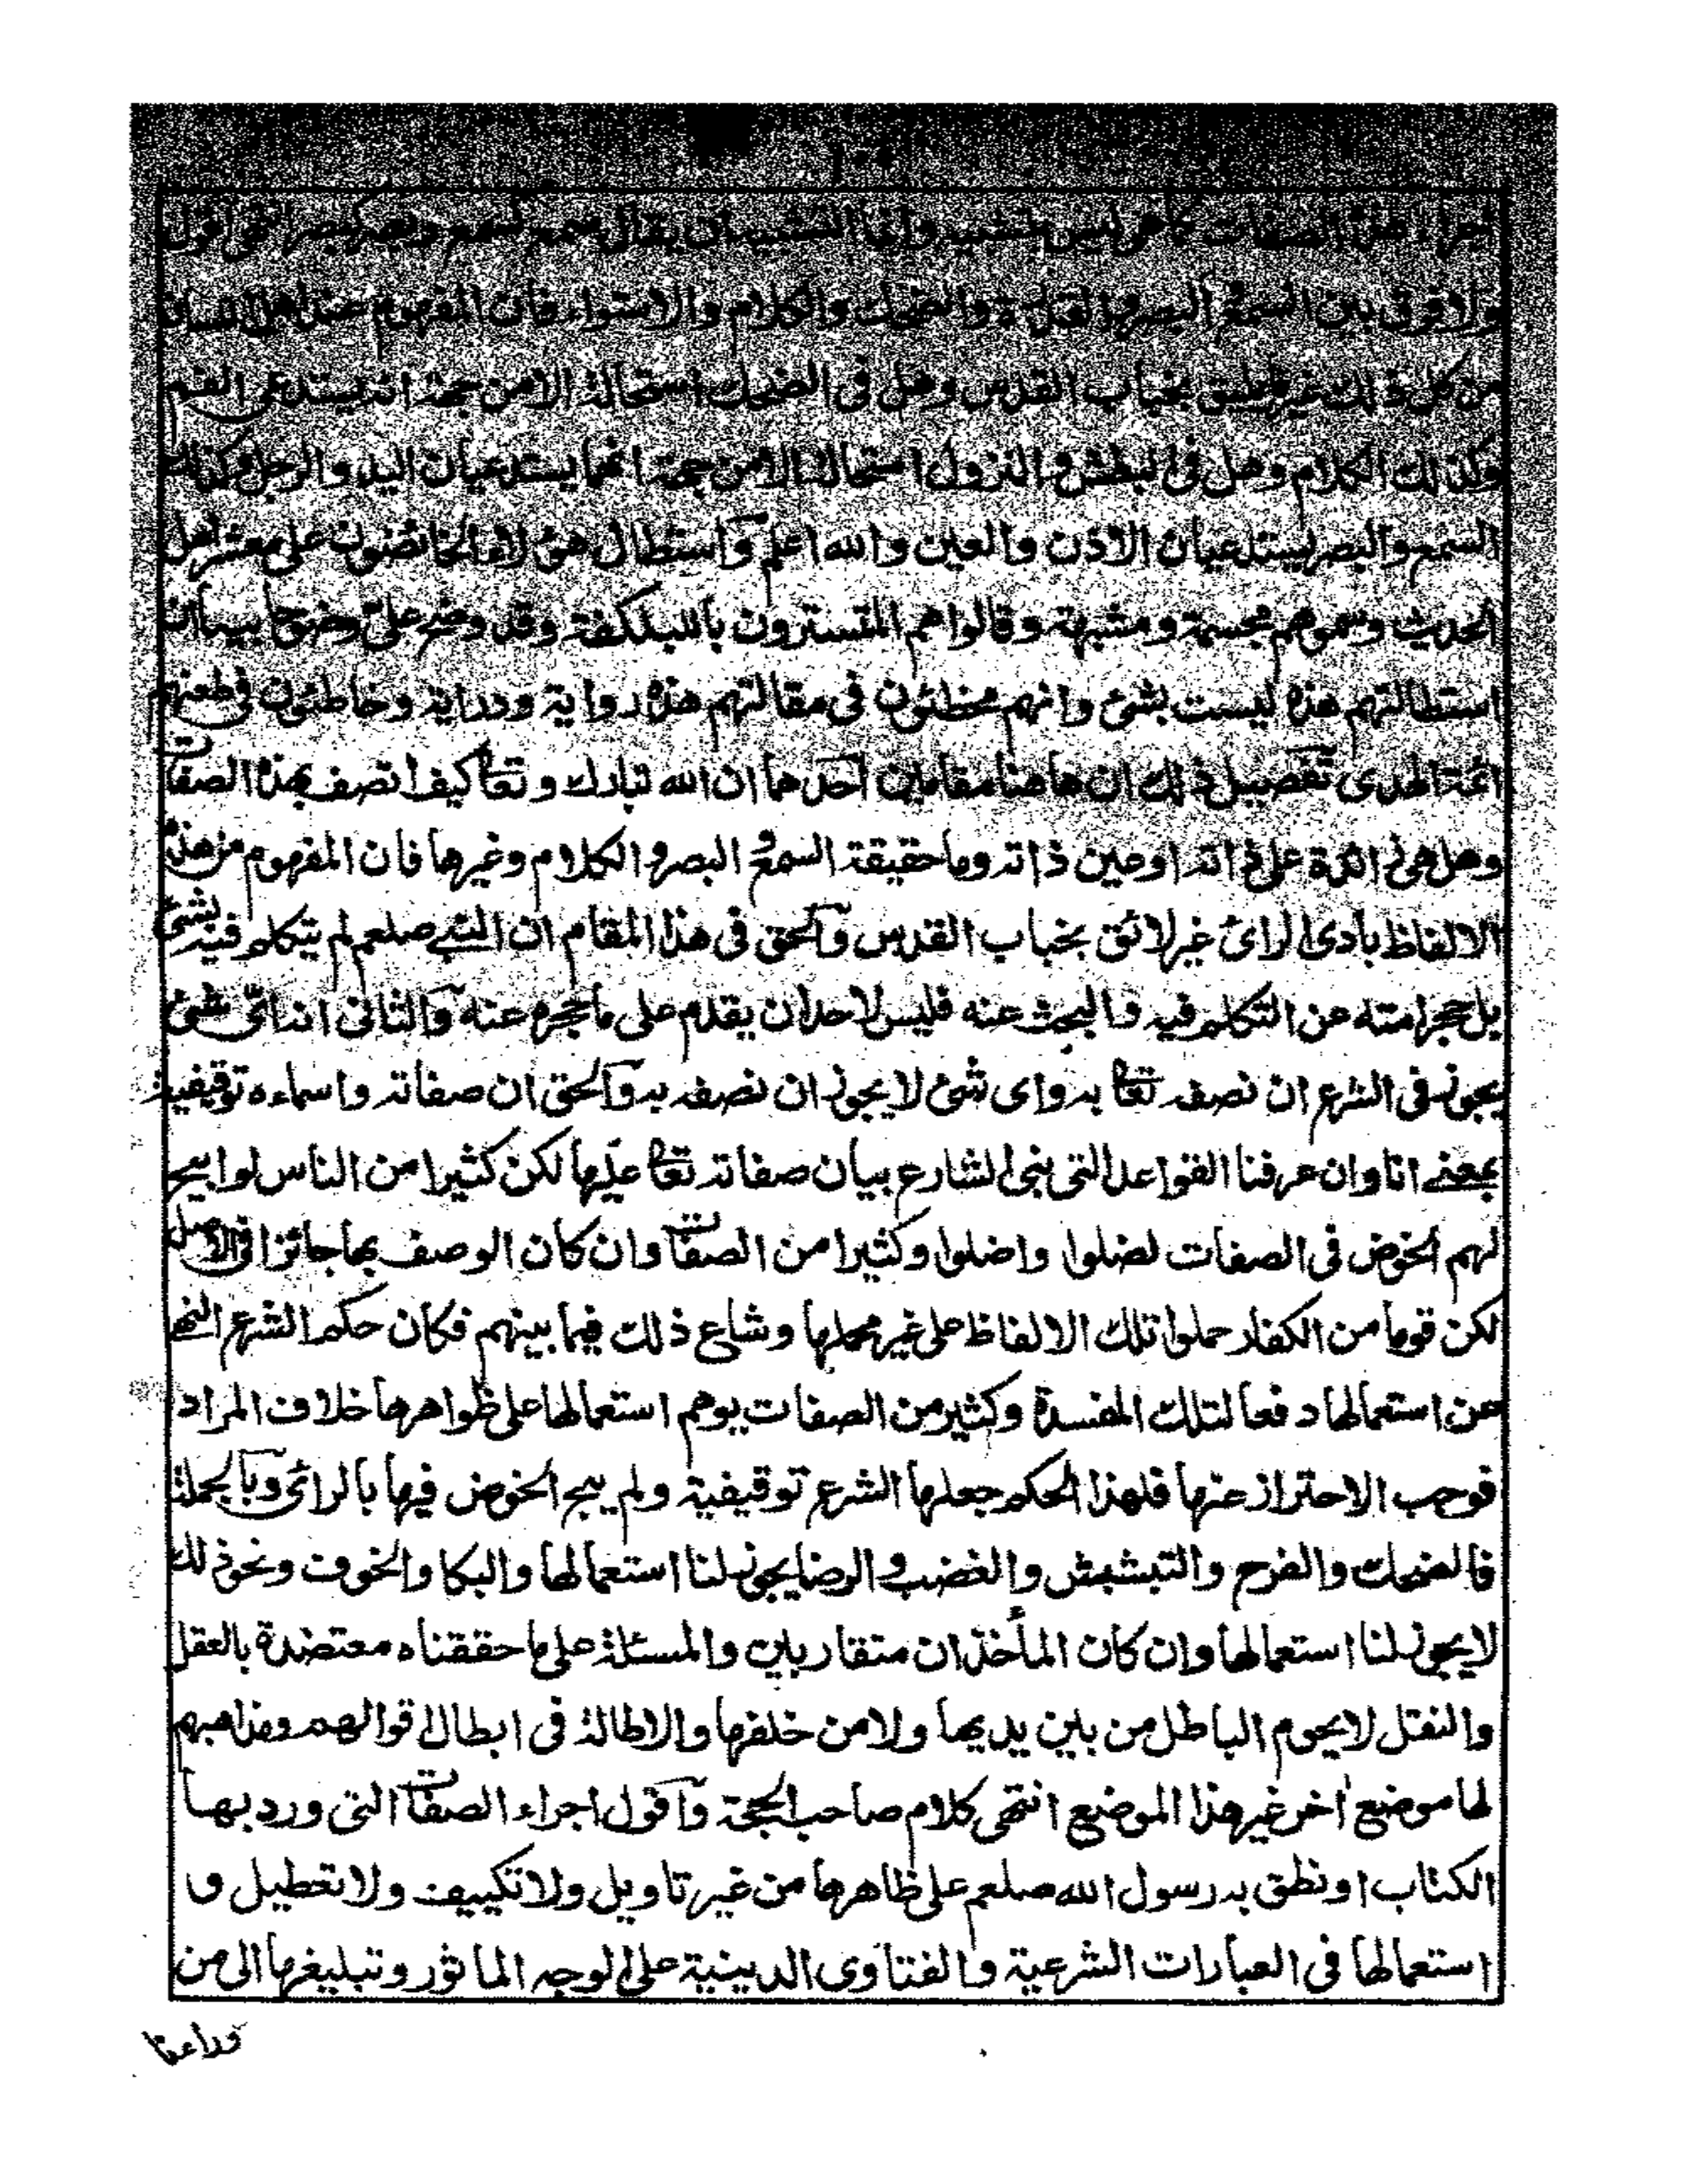 اجراء هذه الصفات كما هي ليس بتشبيه وانما التشبيه ان يقال سمع كسمع وبصر كبصر انتهى اقول
ولا فرق بين السمع والبصر والقدرة والضحك والكلام والاستواء فان المفهوم عند اهل اللسان
من كل ذلك غير ما يليق بجناب القدس وهل في الضحك استحالة الا من جهة انه يستدعي الفم
وكذلك الكلام وهل في البطش والنزول استحالة الا من جهة انهما يستدعيان اليد والرجل وكذلك
السمع والبصر يستدعيان الاذن والعين والله اعلم واستطال هؤلاء الخائضون على معشر اهل
الحديث وسموهم مجسمة ومشبهة وقالوا هم المتسترون بالبلكفة وقد وضح علي وضوحا بينا ان
استطالتهم هذه ليست بشئ وانهم مخطئون في مقالتهم هذه رواية ودراية وخاطئون في طعنهم
ائمة الهدى تفصيل ذلك ان هاهنا مقامين احدهما ان الله تبارك وتعا كيف اتصف بهذه الصفات
وهل هي زائدة على ذاته او عين ذاته وما حقيقة السمع والبصر والكلام وغيرها فان المفهوم من هذه
الالفاظ بادى الرائ غير لائق بجناب القدس والحق في هذا المقام ان النبي صلعم لم يتكلم فيه بشئ
بل حجر امته عن التكلم فيه والبحث عنه فليس لاحد ان يقدم على ما حجره عنه والثاني انه اي شئ
يجوز في الشرع ان نصفه تعا به واى شئ لا يجوز ان نصفه به والحق ان صفاته واسماءه توقيفية
بمعنى انا وان عرفنا القواعد التى بنى الشارع بيان صفاته تعا عليها لكن كثيرا من الناس لو ابيح
لهم الخوض في الصفات لضلوا واضلوا وكثيرا من الصفات وان كان الوصف بها جائزا في الاصل
لكن قوما من الكفار حملوا تلك الالفاظ على غير محملها وشاع ذلك فيما بينهم فكان حكم الشرع النهى
عن استعمالها دفعا لتلك المفسدة وكثير من الصفات يوهم استعمالها على ظواهرها خلاف المراد
فوجب الاحتراز عنها فلهذا الحكم جعلها الشرع توقيفية ولم يبح الخوض فيها بالرائ وبالجملة
فالضحك والفرح والتبشبش والغضب والرضا يجوز لنا استعمالها والبكا والخوف ونحو ذلك
لا يجوز لنا استعمالها وان كان المأخذان متقاربين والمسئلة على ما حققناه معتضدة بالعقل
والنقل لا يحوم الباطل من بين يديها ولا من خلفها والاطالة في ابطال اقوالهم ومذاهبهم
لها موضع اخر غير هذا الموضع انتهى كلام صاحب الحجة واقول اجراء الصفات التى ورد بها
الكتاب او نطق به رسول الله صلعم على ظاهرها من غير تاويل ولا تكييف ولا تعطيل و
استعمالها في العبارات الشرعية والفتاوى الدينية على الوجه الماثور وتبليغها الى من